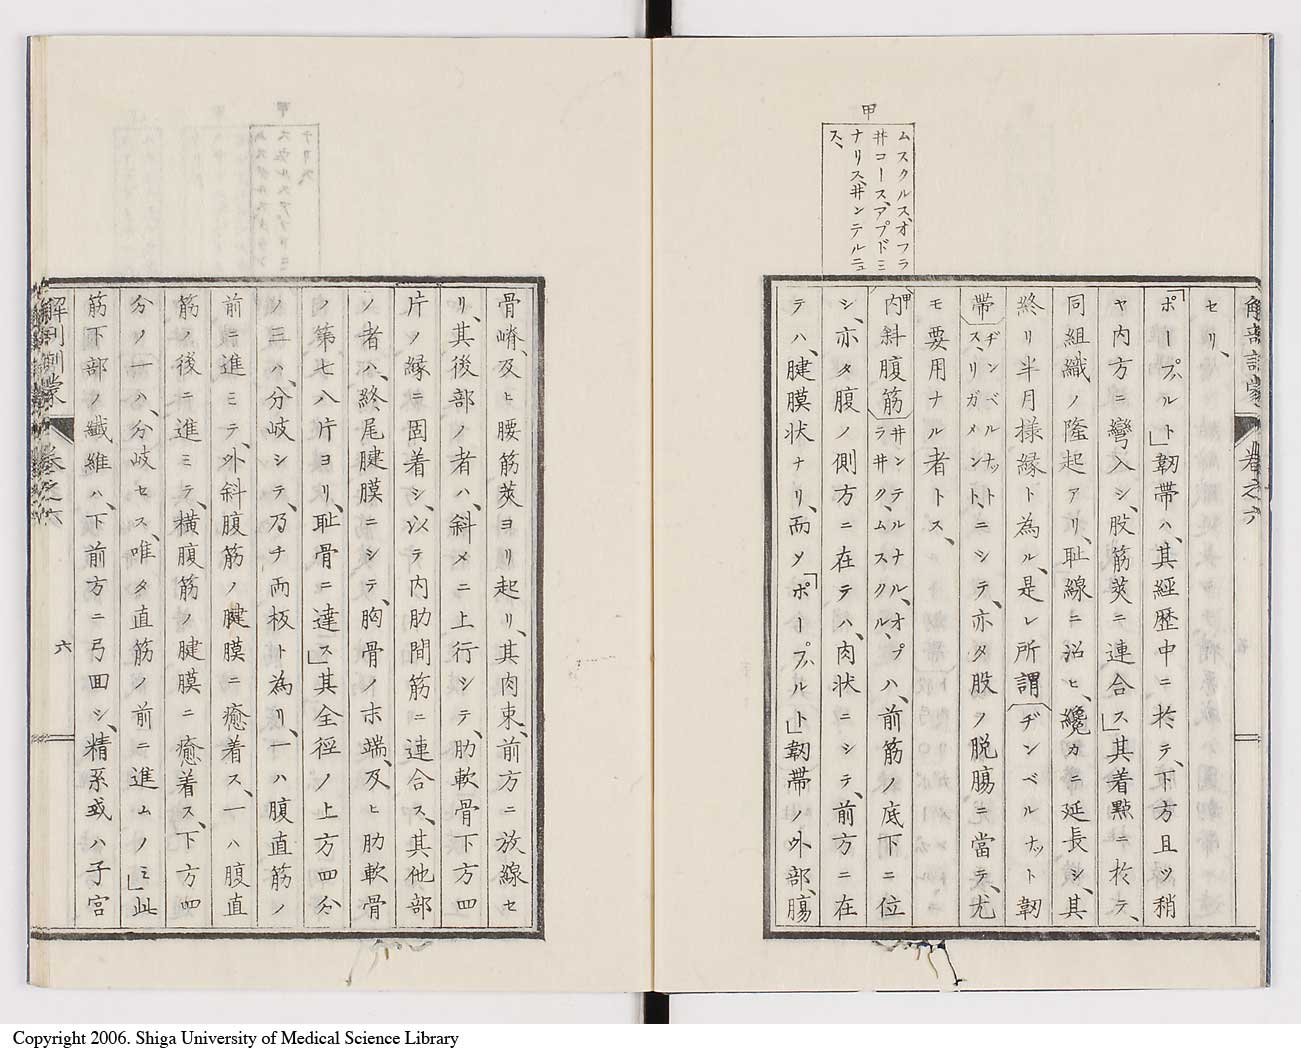 甲
ムスクルス、オフラ
井コース、アブドミ
ナリス、井ンテルニュ
ス、
解剖訓蒙 巻之六
セリ、
「ポープルト」韌帯ハ、其経歴中ニ於テ、下方且ツ稍
ヤ内方ニ彎入シ、股筋莢ニ連合ス」其着點ニ於テ、
同組織ノ隆起アリ、耻線ニ沿ヒ、纔カニ延長シ、其
終リ半月様縁ト為ル、是レ所謂ヂンベルナット韌
帯ヂンベルナット、ス、リガメント、ニシテ、亦タ股ノ脱膓ニ當テ、尤
モ要用ナル者トス、
甲内斜腹筋井ンテルナル、オ、ブラ井ク、ムスクル、ハ、前筋ノ底下ニ位
シ、亦タ腹ノ側方ニ在テハ、肉状ニシテ、前方ニ在
テハ、腱膜状ナリ、而ソ「ポープルト」韌帯ノ外部、膓
骨嵴、及ヒ腰筋莢ヨリ起リ、其肉束、前方ニ放線セ
リ、其後部ノ者ハ、斜メニ上行シテ、肋軟骨下方四
片ノ縁ニ固着シ、以テ内肋間筋ニ連合ス、其他部
ノ者ハ、終尾腱膜ニシテ、胸骨ノ末端、及ヒ肋軟骨
ノ第七八片ヨリ、耻骨ニ達ス」其全徑ノ上方四分
ノ三ハ、分岐シテ、乃チ両板ト為リ、一ハ腹直筋ノ
前ニ進ミテ、外斜腹筋ノ腱膜ニ癒着ス、一ハ腹直
筋ノ後ニ進ミテ、横腹筋ノ腱膜ニ癒着ス、下方四
分ノ一ハ、分岐セス、唯タ直筋ノ前ニ進ムノミ」此
筋下部ノ纎維ハ、下前方ニ弓回シ、精系或ハ子宮
解剖訓蒙 巻之六 六
Copyright 2006. Shiga University of Medical Science Library